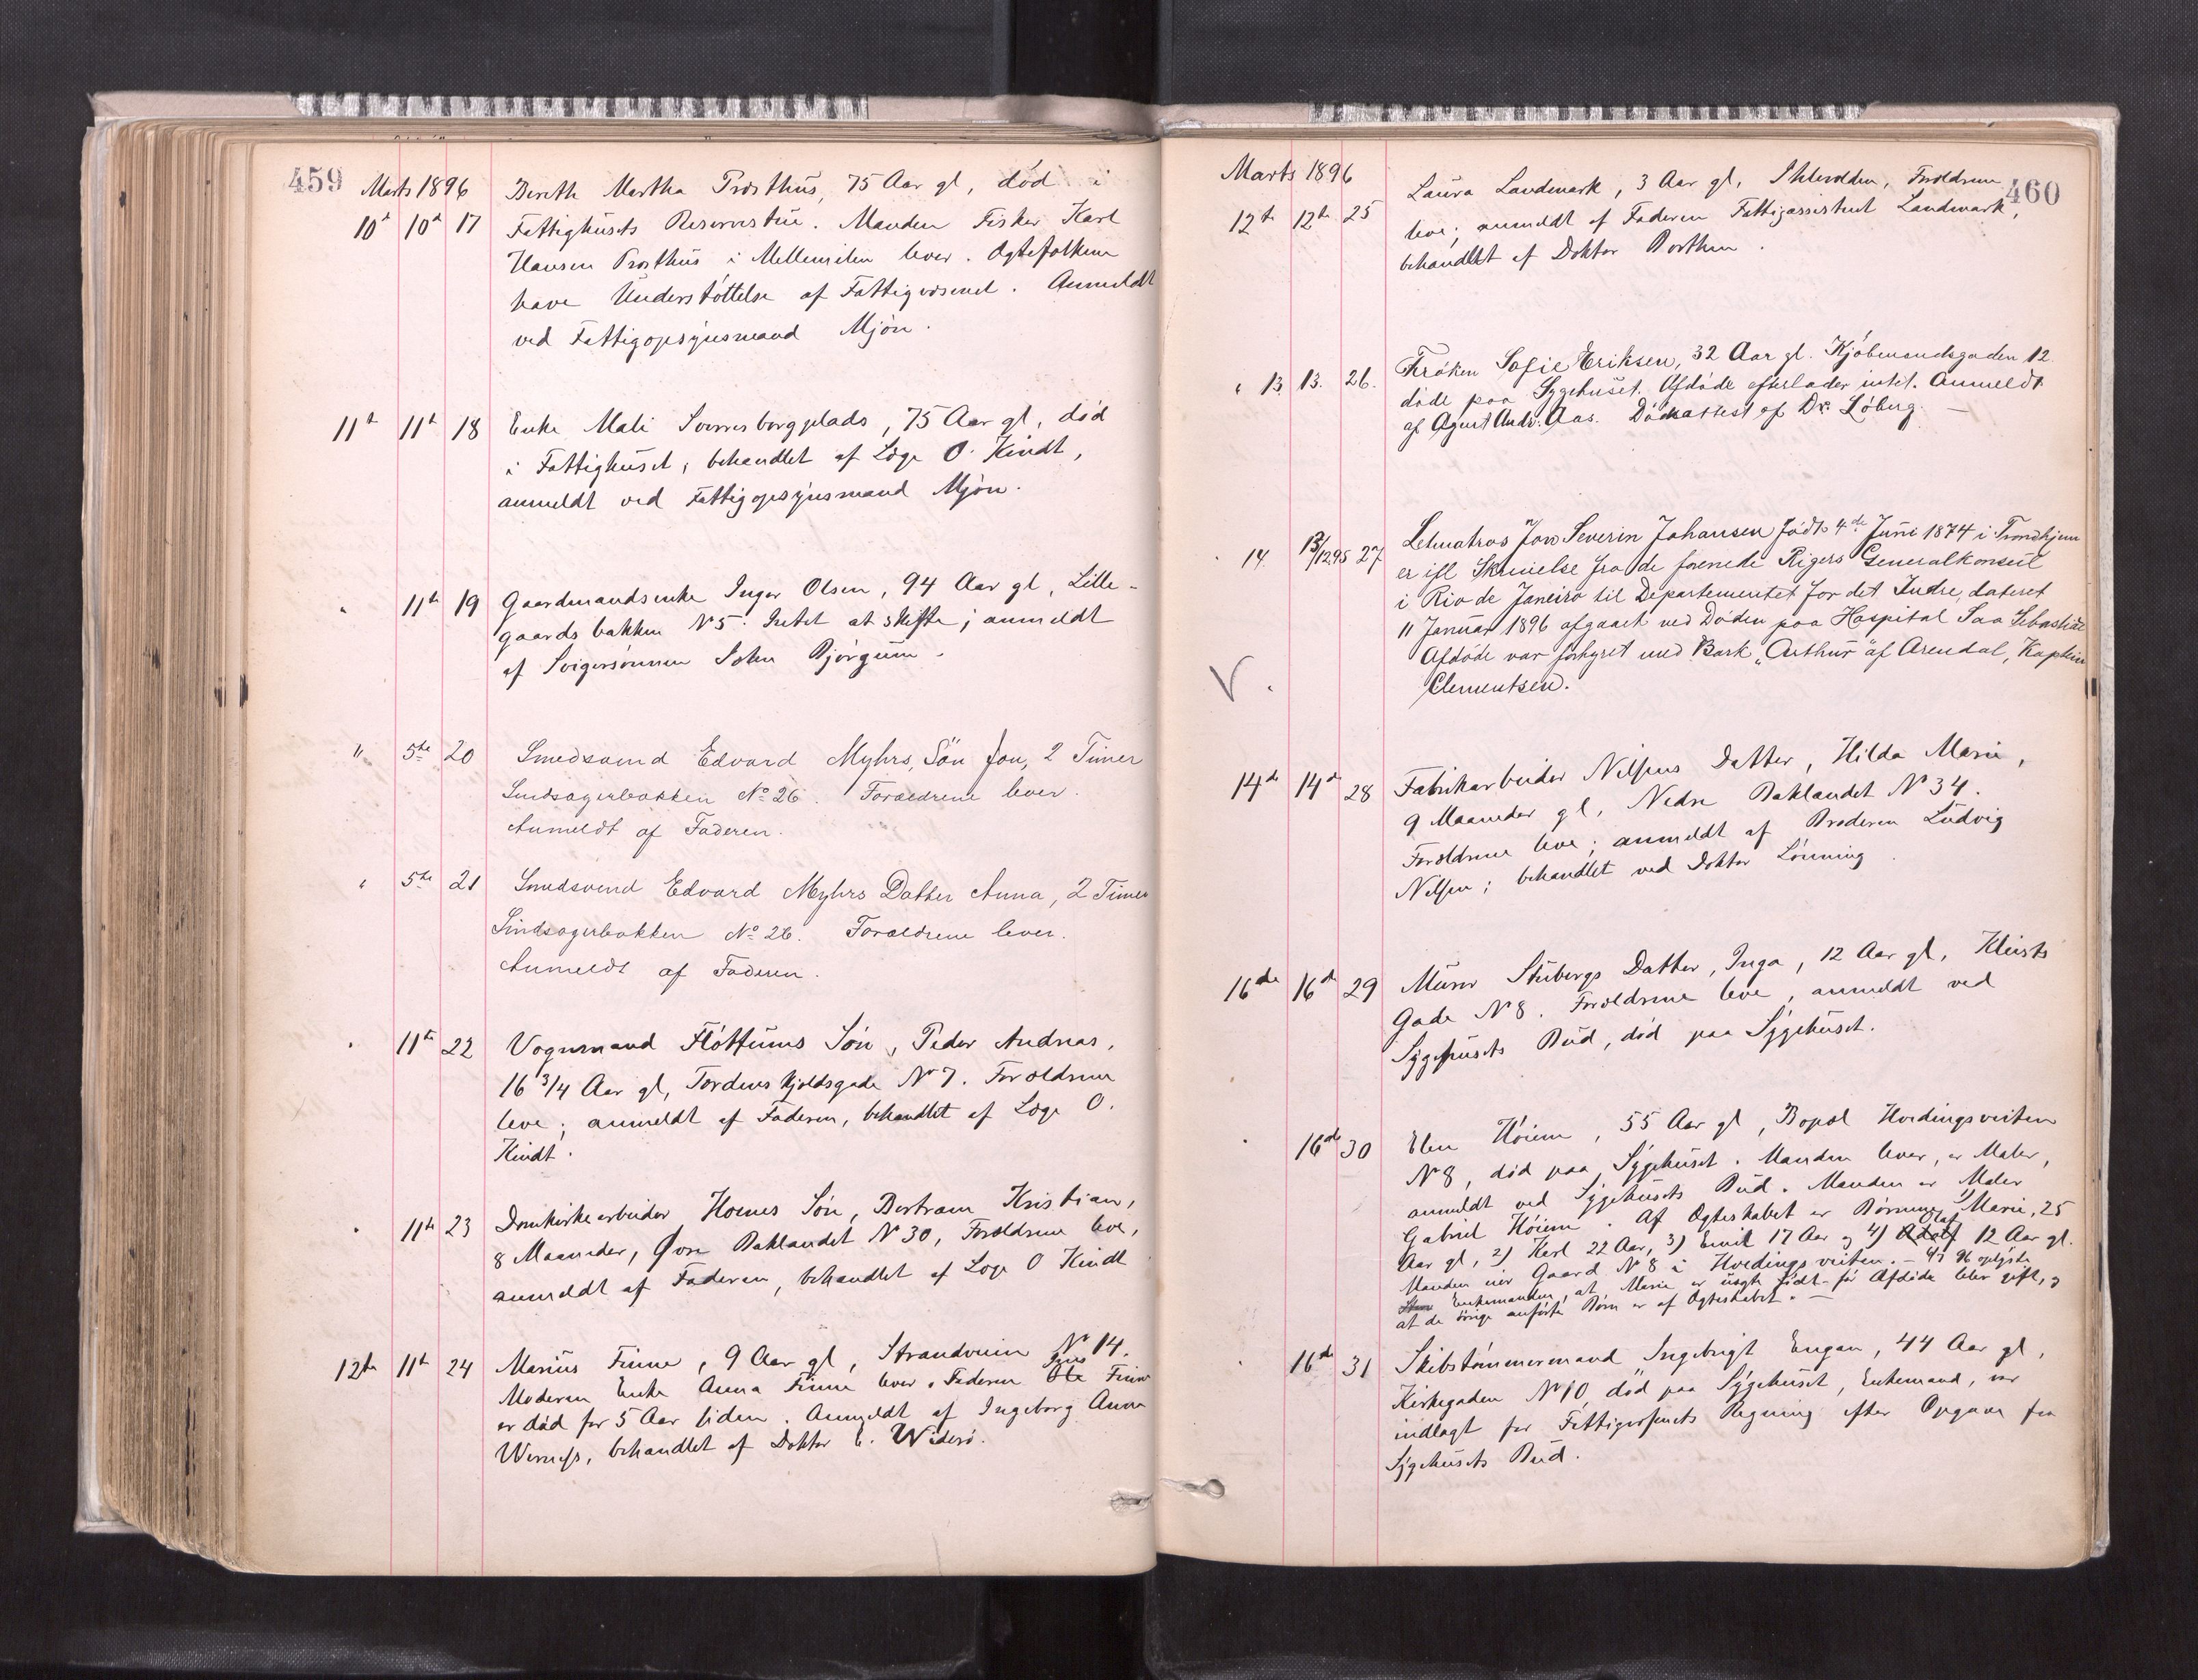 459
Marts 1896
Bereth Martha Prosthus, 75 Aar gl, död i
10d 10d 17 Fattighusets Reservestue. Manden Fisker Karl
Hansen Prosthus i Mellemilen lever. Ægtefolkene
have Understöttelse af Fattigvæsenet. Anmeldt
ved Fattigopsynsmand Mjön.
11te 11te 18 Enke Mali Sverresborgplads, 75 Aar gl, död
i Fattighuset, behandlet af Læge O. Kindt,
anmeldt ved Fattigopsynsmand Mjön.
" 11te 19 Gaardmandsenke Inger Olsen, 94 Aar gl, Lille-
gaardsbakken N 5. Intet at skifte; anmeldt
af Svigersönnen John Björgum.
" 5te 20 Smedsvend Edvard Myhrs, Sön Jon, 2 Timer
Sindsagerbakken No 26. Forældrene lever.
Anmeldt af Faderen.
" 5te 21 Smedsvend Edvard Myhrs Datter Anna, 2 Timer
Sindsagerbakken No 26. Forældrene lever.
Anmeldt af Faderen.
" 11te 22 Vognmand Flöttums Sön, Peder Andreas,
16 3/4 Aar gl, Tordenskjoldsgade No 7. Forældrene
leve; anmeldt af Faderen, behandlet af Læge O.
Kindt.
" 11te 23 Domkirkearbeider Hoenes Sön, Bertram Kristian,
8 Maaneder, Øvre Baklandet N 30, Forældrene leve,
anmeldt af Faderen, behandlet af Læge O Kindt
12te 11te 24 Marius Finne, 9 Aar gl, Strandveien No 14.
Moderen Enke Anna Finne lever. Faderen Ole Finne
er död for 5 Aar siden. Anmeldt af Ingeborg Anna
behandlet af Doktor E. Widerö.
460
Marts 1896
12te 12te 25 Laura Landmark, 3 Aar gl, Ihlevolden, Forældrene
leve; anmeldt af Faderen Fattigassistent Landmark,
behandlet af Doktor Borthen.
" 13. 13. 26. Fröken Sofie Eriksen, 32 Aar gl. Kjöbmandsgaden 12
döde paa Sygehuset. Afdöde efterlader intet. Anmeldt
af Agent Andr. Aas. Dödsattest af Dr. Löberg. —
" 14. 13/12 95 27 Letmatros Jon Severin Johansen född 4de Juni 1874 i Trondhjem
er ifl Skrivelse fra de forenede Rigers Generalkonsul
i Rio de Janeiro til Departementet for det Indre, dateret
11 Januar 1896 afgaaet ved Döden paa Hospital Sao Sebastiao
Afdöde var forhyret med Bark „Arthur" af Arendal, Kaptein
V. Clementsen.
14de 14de 28 Fabrikarbeider Nilsens Datter, Hilda Marie,
9 Maaneder gl, Nedre Baklandet No 34.
Forældrene leve; anmeldt af Broderen Ludvig
Nilsen; behandlet ved Doktor Lönning.
16de 16de 29 Murer Stubergs Datter, Inga, 12 Aar gl, Kleists
Gade No 8. Forældrene leve, anmeldt ved
Sygehusets Bud, död paa Sygehuset.
" 16de 30 Elen Höiem, 55 Aar gl, Bopæl Hvedingsveiten
No 8, död paa Sygehuset. Manden lever, er Maler,
anmeldt ved Sygehusets Bud. Manden er Maler
Gabriel Höiem. Af Ægteskabet er Börnene 1) Marie, 25
Aar gl, 2) Karl 22 Aar, 3) Emil 17 Aar og 4) Adolf Olaf 12 Aar gl.
Manden eier Gaard No 8 i Hvedingsveiten. — 4/7 96 oplyste
Enkemanden, at Marie er uægte födt för Afdöde blev gift, og
at de övrige anförte Börn er af Ægteskabet. —
" 16de 31 Skibstömmermand Ingebrigt Engan, 44 Aar gl,
Kirkegaden No 10, död paa Sygehuset, Enkemand, var
indlagt for Fattigvæsenets Regning efter Opgave fra
Sygehusets Bud.